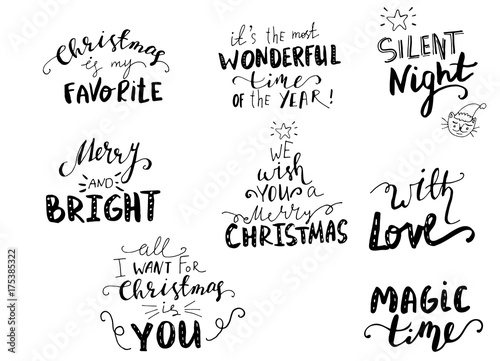 Christmas
is my
FAVORITE
it's the most
WONDERFUL
time
OF the YEAR!
SILENT
Night
Merry
AND
BRIGHT
WE
wish
YOU a
Merry
CHRISTMAS
with
Love
all
I WANT FOR
Christmas
is
YOU
MAGIC
time
175385322